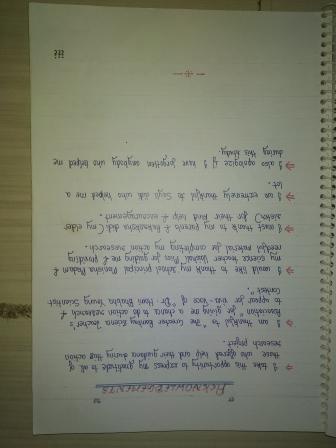 ACKNOWLEDGEMENTS
I take this opportunity to express my gratitude to all of
those who offered help and their guidance during this action
research project.
I am thankful to "The Greater Bombay Science teacher's
Association" for giving me a chance to do action research &
to appear for viva-voce of "Dr. Homi Bhabha Young Scientist
Contest".
I would like to thank my school principal Manisha Madam &
my science teacher Vaishali Miss for guiding me & providing
needful material for completing my action research.
I must thank to my Parents & Aakanksha didi (my elder
sister) for their kind help & encouragement.
I am extremely thankful to Sayli didi who helped me a
lot.
I also apologize if I have forgotten anybody who helped me
during this study.
iii